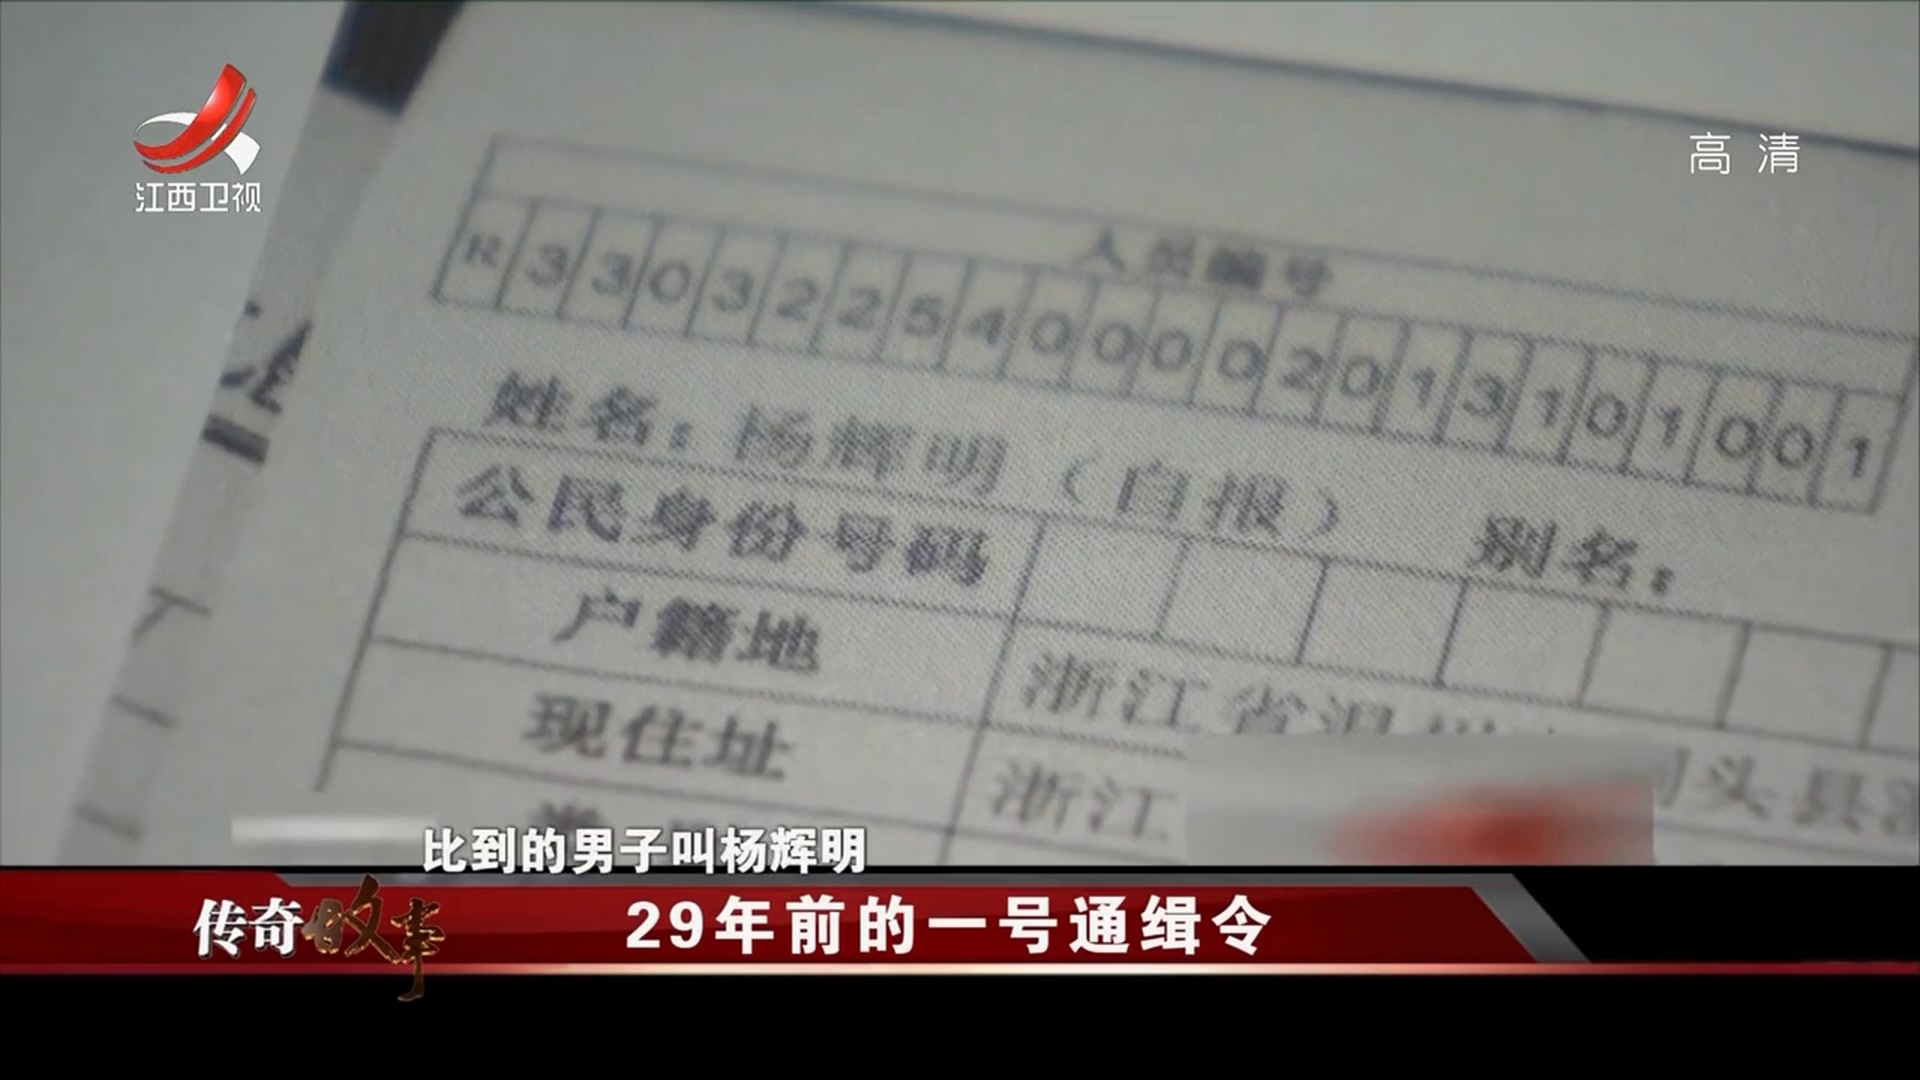 江西卫视
高清
人员编号
R3303225400002013101001
姓名：杨辉明（自报） 别名：
公民身份号码
户籍地 浙江省温州
现住址 浙江 头县
比到的男子叫杨辉明
传奇故事
29年前的一号通缉令